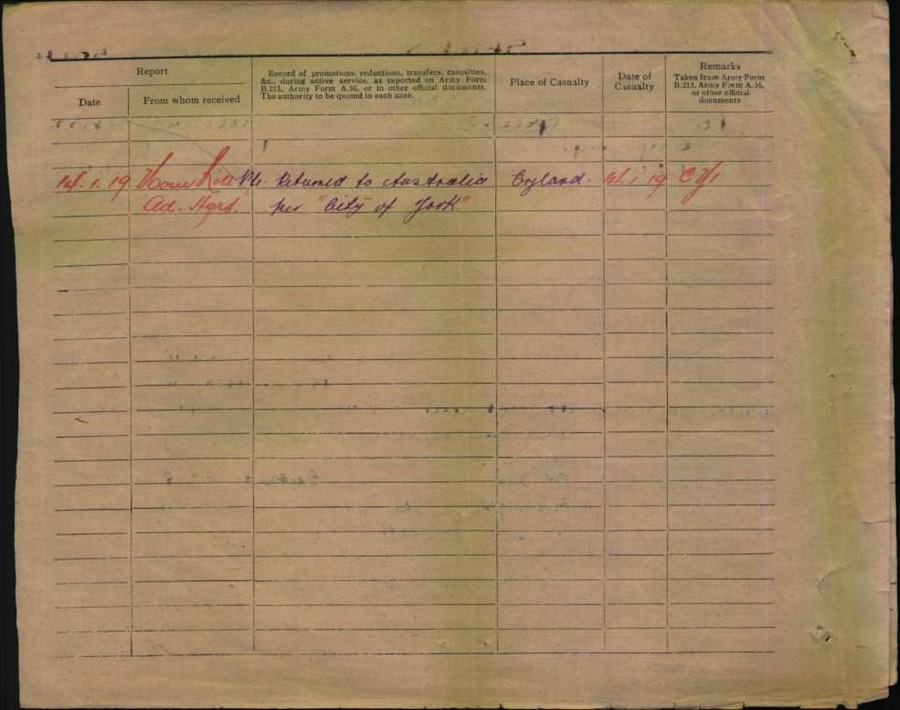 Report
Date
From whom received
Record of promotions, reductions, transfers, casualties,
&c., during active service, as reported on Army Form
B.213, Army Form A.36, or in other official documents.
The authority to be quoted in each case.
Place of Casualty
Date of
Casualty
Remarks
Taken from Army Form
B.213, Army Form A.36,
or other official
documents
14.1.19
Returned to Australia
England.
14.1.19
Ad. Hqrs.
per "City of York"